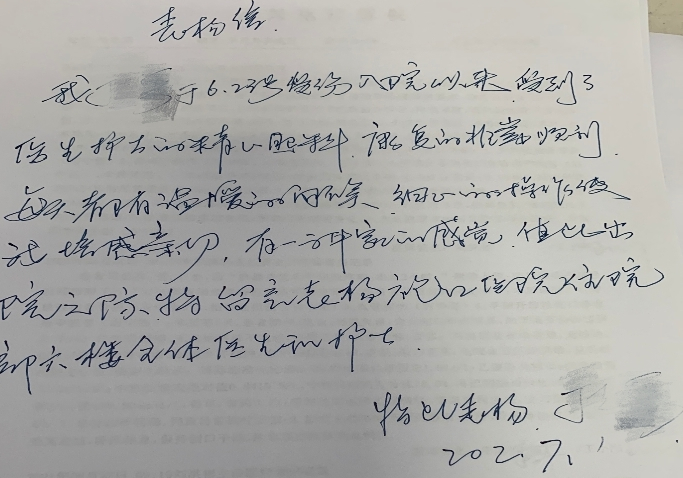 表扬信
我 于6.23号受伤入院以来,受到了
医生护士的精心照料,康复的相当顺利
每天都有温暖的问候,细心的操作使
我倍感亲切,有一种家的感觉,值此出
院之际,特留言表扬 医院住院
部六楼全体医生和护士
特此表扬
202.7.1